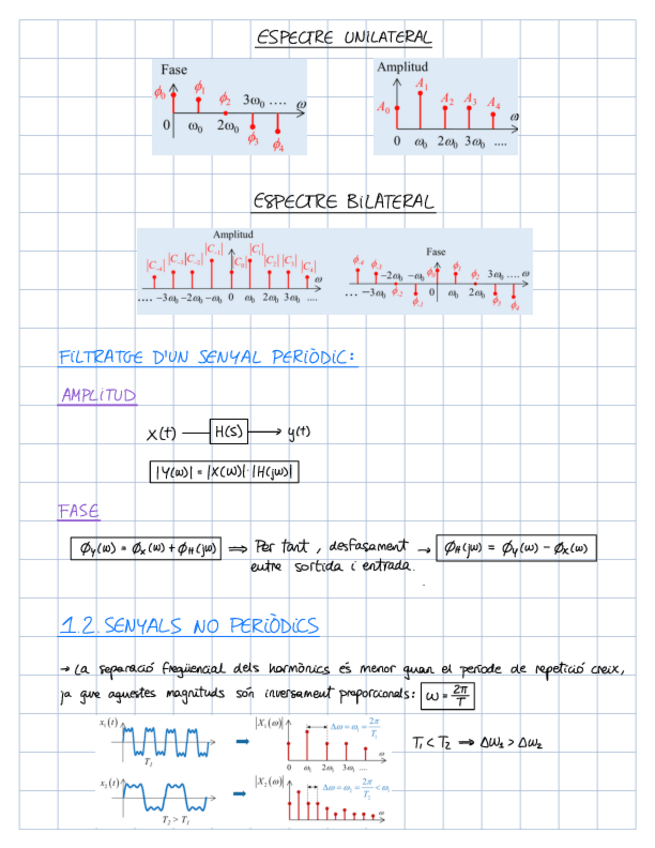 ESPECTRE UNILATERAL
Fase
ϕ₀ ϕ₁ ϕ₂ 3ω₀ .... ω
0 ω₀ 2ω₀ ϕ₃ ϕ₄
Amplitud
A₀ A₁ A₂ A₃ A₄ ω
0 ω₀ 2ω₀ 3ω₀ ....
ESPECTRE BILATERAL
Amplitud
|C₋₄| |C₋₃| |C₋₂| |C₋₁| |C₀| |C₁| |C₂| |C₃| |C₄| ω
.... −3ω₀ −2ω₀ −ω₀ 0 ω₀ 2ω₀ 3ω₀ ....
Fase
ϕ₋₄ ϕ₋₃ −2ω₀ −ω₀ ϕ₀ ϕ₁ ϕ₂ 3ω₀ .... ω
... −3ω₀ ϕ₋₂ ϕ₋₁ 0 ω₀ 2ω₀ ϕ₃ ϕ₄
FILTRATGE D'UN SENYAL PERIÒDIC:
AMPLITUD
x(t) H(s) → y(t)
|Y(ω)| = |X(ω)|·|H(jω)|
FASE
ϕY(ω) = ϕX(ω) + ϕH(jω) ⇒ Per tant, desfasament → ϕH(jω) = ϕY(ω) − ϕX(ω)
entre sortida i entrada.
1.2. SENYALS NO PERIÒDICS
→ La separació freqüencial dels harmònics és menor quan el període de repetició creix,
ja que aquestes magnituds són inversament proporcionals: ω = 2π/T
x₁(t) T₁ |X₁(ω)| Δω = ω₁ = 2π/T₁
0 ω₁ 2ω₁ 3ω₁ .... ω
T₁ < T₂ ⇒ Δω₁ > Δω₂
x₂(t) T₂ > T₁ |X₂(ω)| Δω = ω₂ = 2π/T₂ < ω₁
ω